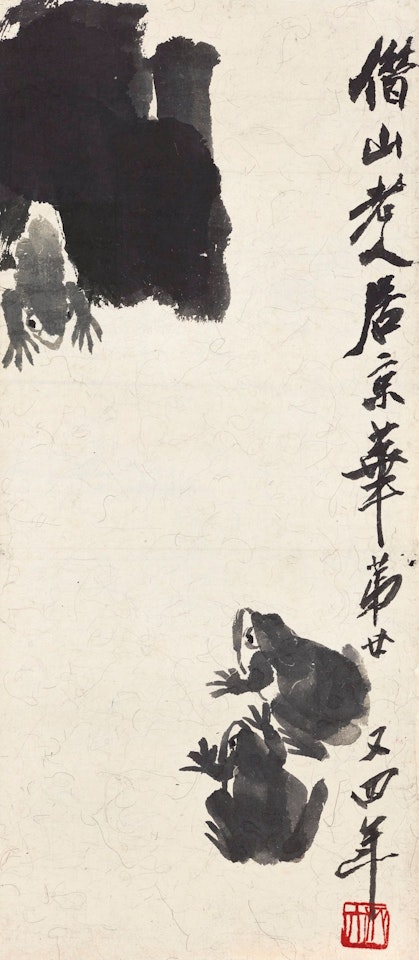 借山老人居京華第廿又四年